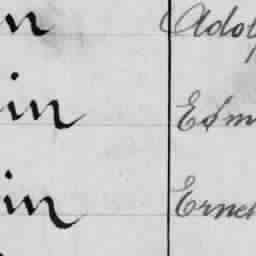 n Adol
in Edm
in Ernes